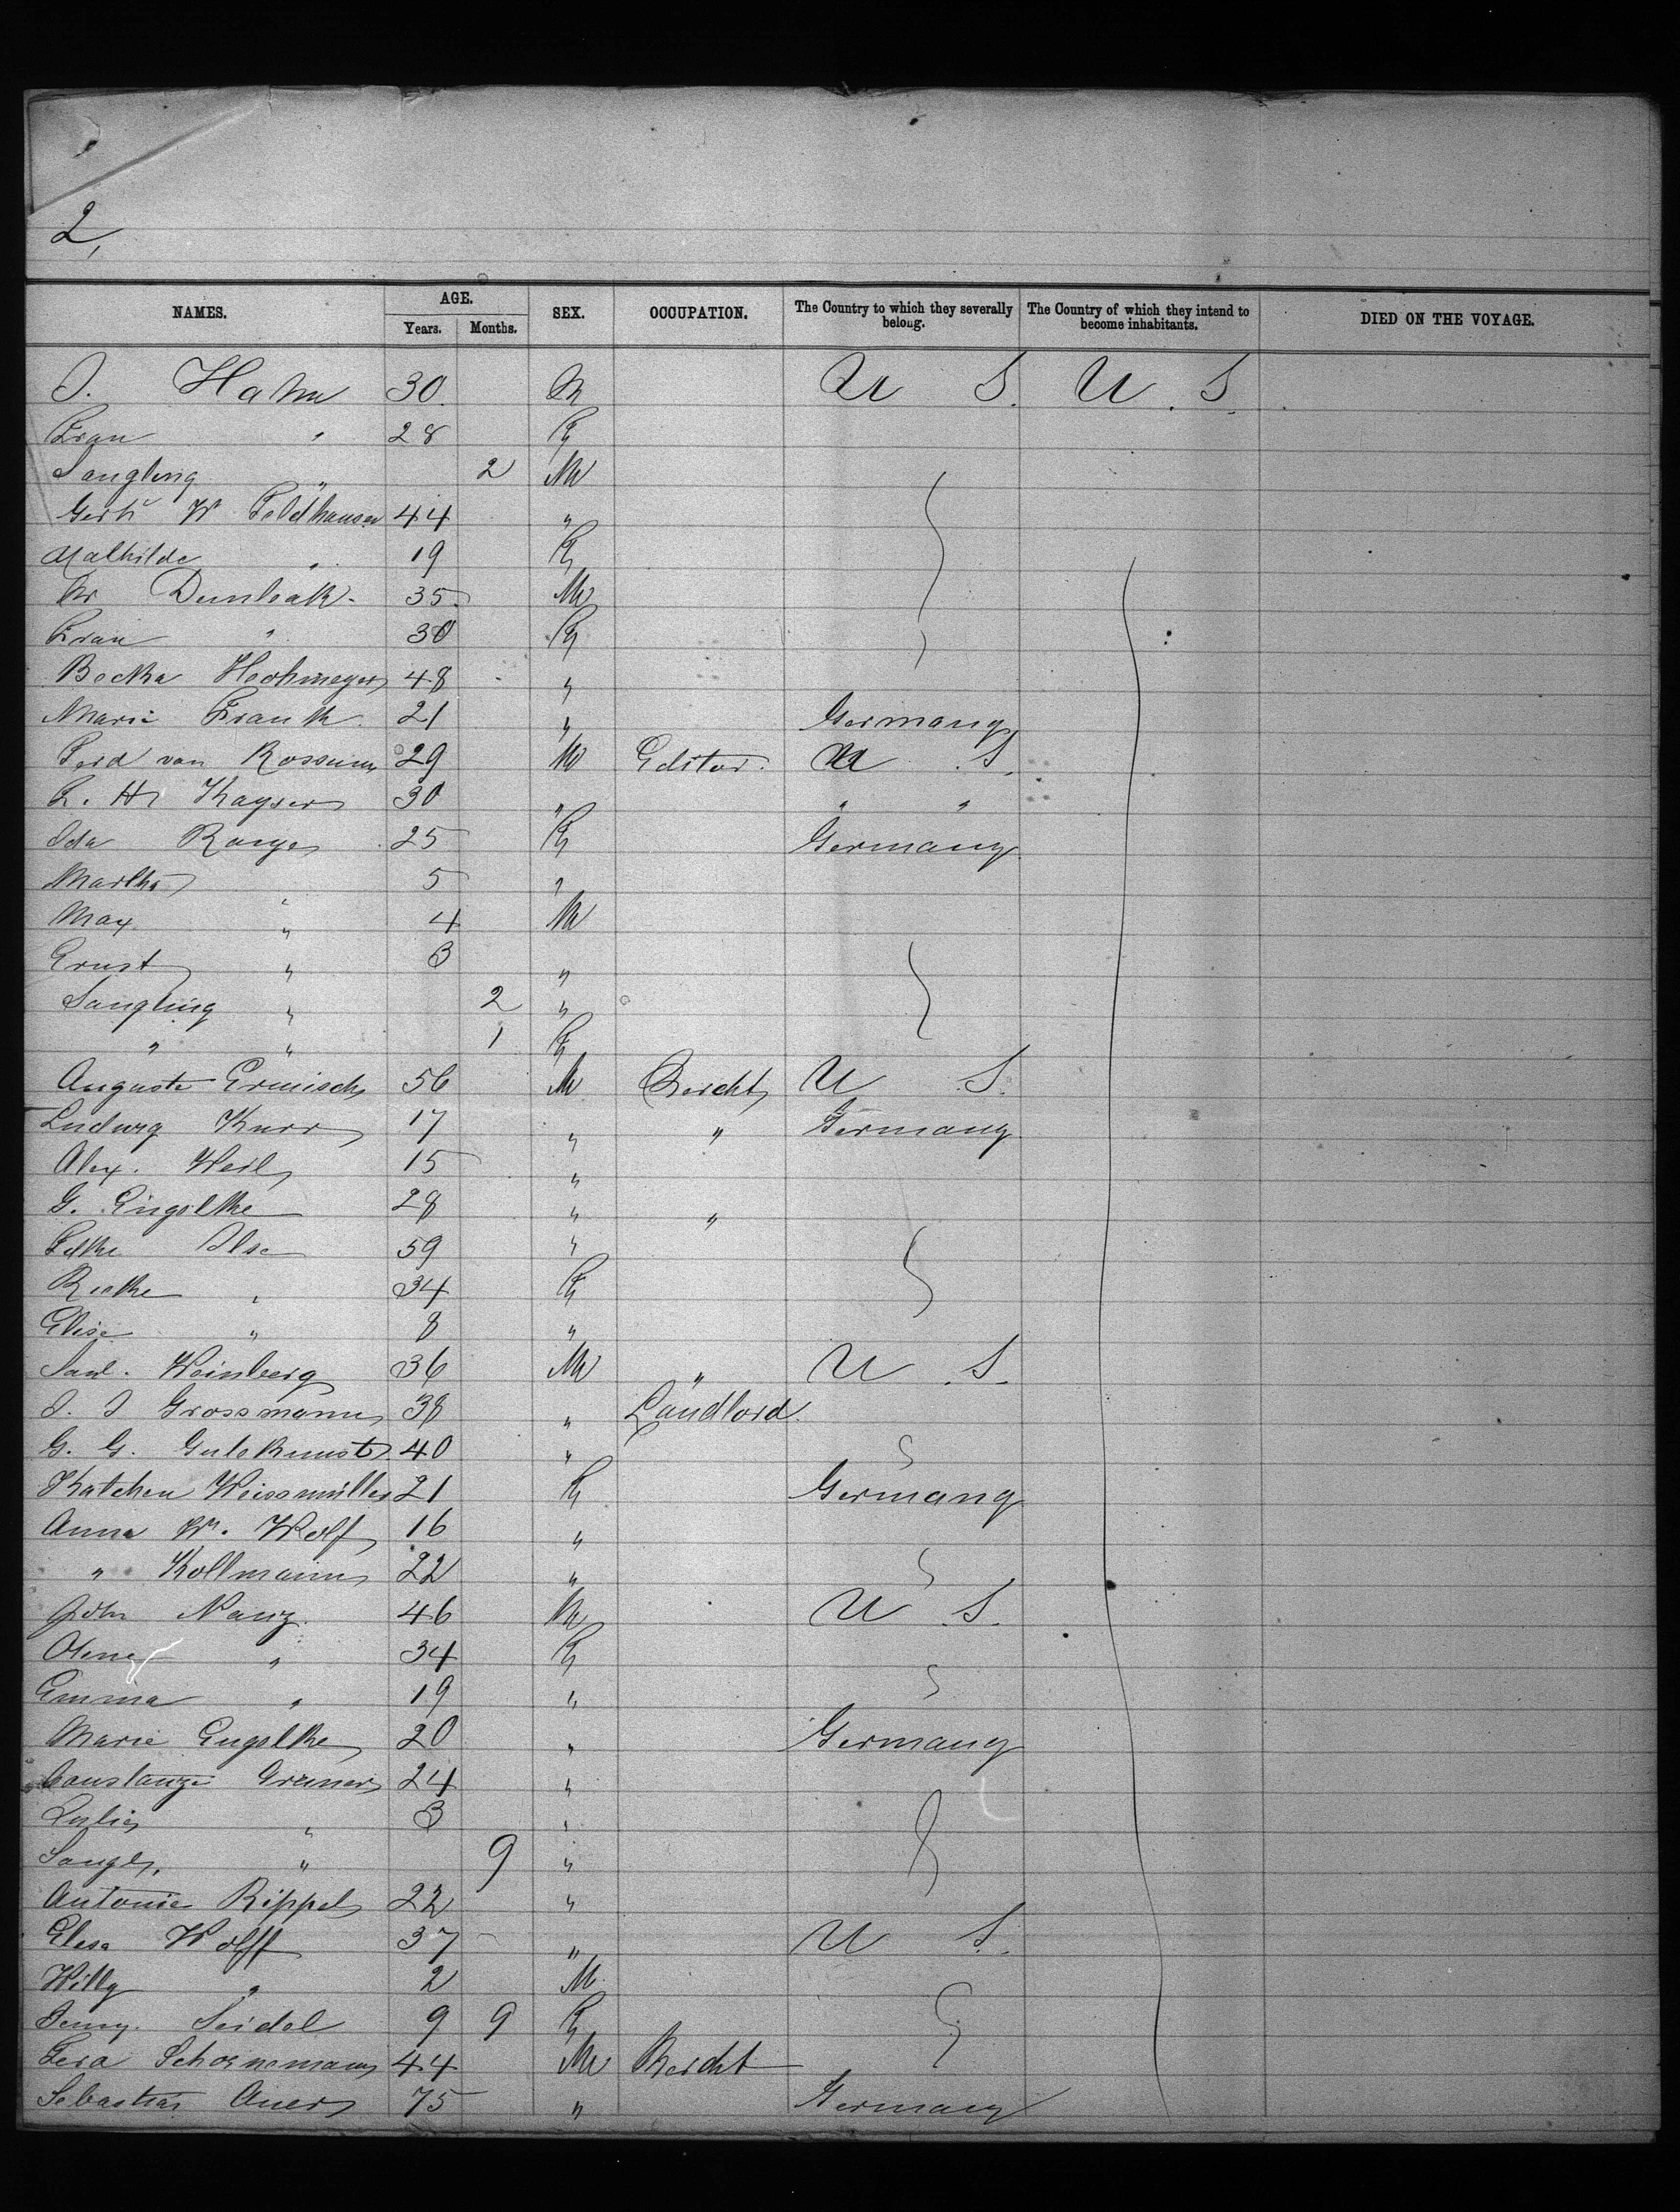 2,
NAMES. AGE. SEX. OCCUPATION. The Country to which they severally belong. The Country of which they intend to become inhabitants. DIED ON THE VOYAGE.
Years. Months.
J. Hahn 30. M U S. U. S.
Frau " 28 F
Saugling " 2 M
W Feldhausen 44 "
Mathilde " 19 F
Mr 35 M
Frau " 30 F
Becka 48 "
Marie Frank 21 " Germany
Ferd van Rossum 29 M Editor. U S.
F. H. Kayser 30 " " "
Ida 25 F Germany
Martha " 5 "
Max " 4 M
Ernst " 3 "
Saugling " 2 "
" " 1 F
Auguste Ermisch 56 M U S.
Ludwig Knorr 17 " " Germany
Alex. Weil 15 "
G. Engelke 28 " "
59 "
" 34 F
Elise " 8 "
Saml. Weinberg 36 M " U S.
J. J Grossmann 38 " Landlord.
G. G. Gutekunst 40 "
Katchen Weissmüller 21 F Germany
Anna W. Wolf 16 "
" Kollmann 22 "
John Nanz. 46 M U S.
" 34 F
Emma " 19 "
Marie Engelke 20 " Germany
Constanze Greiner 24 "
" 3 "
Saugl. " 9 "
Antonie Rippel 22 "
Elesa Wolff 37 " U S.
Willy " 2 M.
Jenny. Seidel 9 9 F
Schoenemann 44 M
Sebastian Auer 75 " Germany